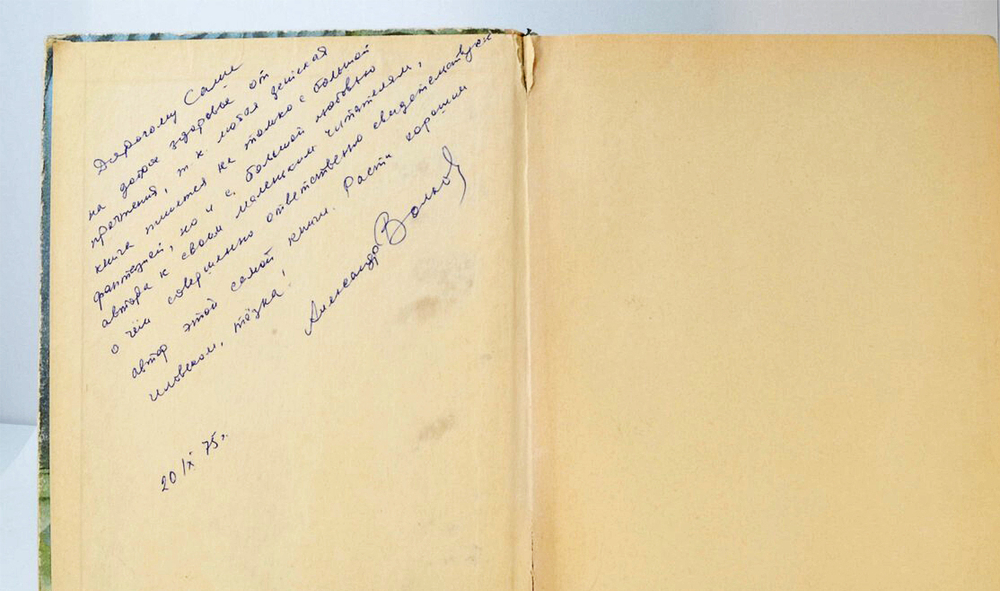 Дорогому Саше
на долгое здоровье от
прочтения, т к любая детская
книга пишется не только с большой
фантазией, но и с большой любовью
автора к своим маленьким читателям,
о чём совершенно ответственно свидетельствует
автор этой самой книги. Расти хорошим
человеком, тёзка!
Александр Волков
20/X 75г.